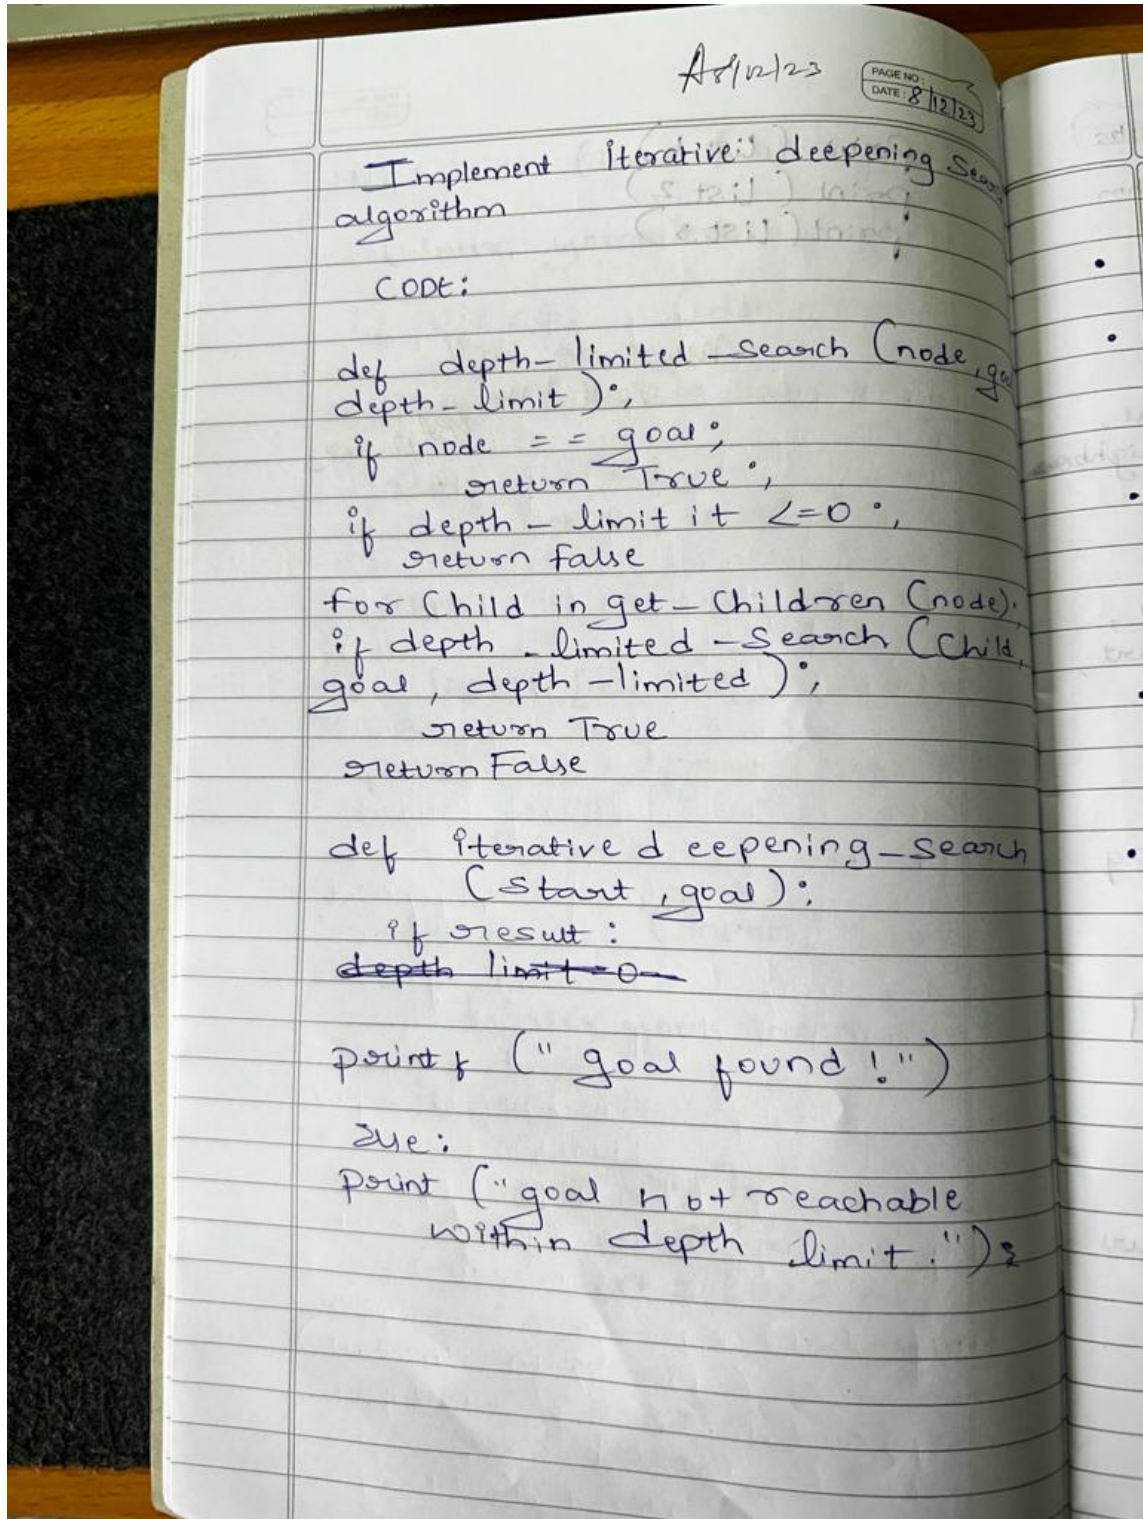 8/12/23
PAGE NO:
DATE: 8/12/23
Implement iterative deepening
algorithm
CODE:
def depth-limited-search (node,
depth-limit):
if node == goal:
return True;
if depth-limit it <=0:
return false
for Child in get-Children (node):
if depth-limited-Search (Child,
goal, depth-limited):
return True
return False
def iterative d eepening-search
(start, goal):
if result:
depth limit=0
printf ("goal found!")
print ("goal not reachable
within depth limit.");